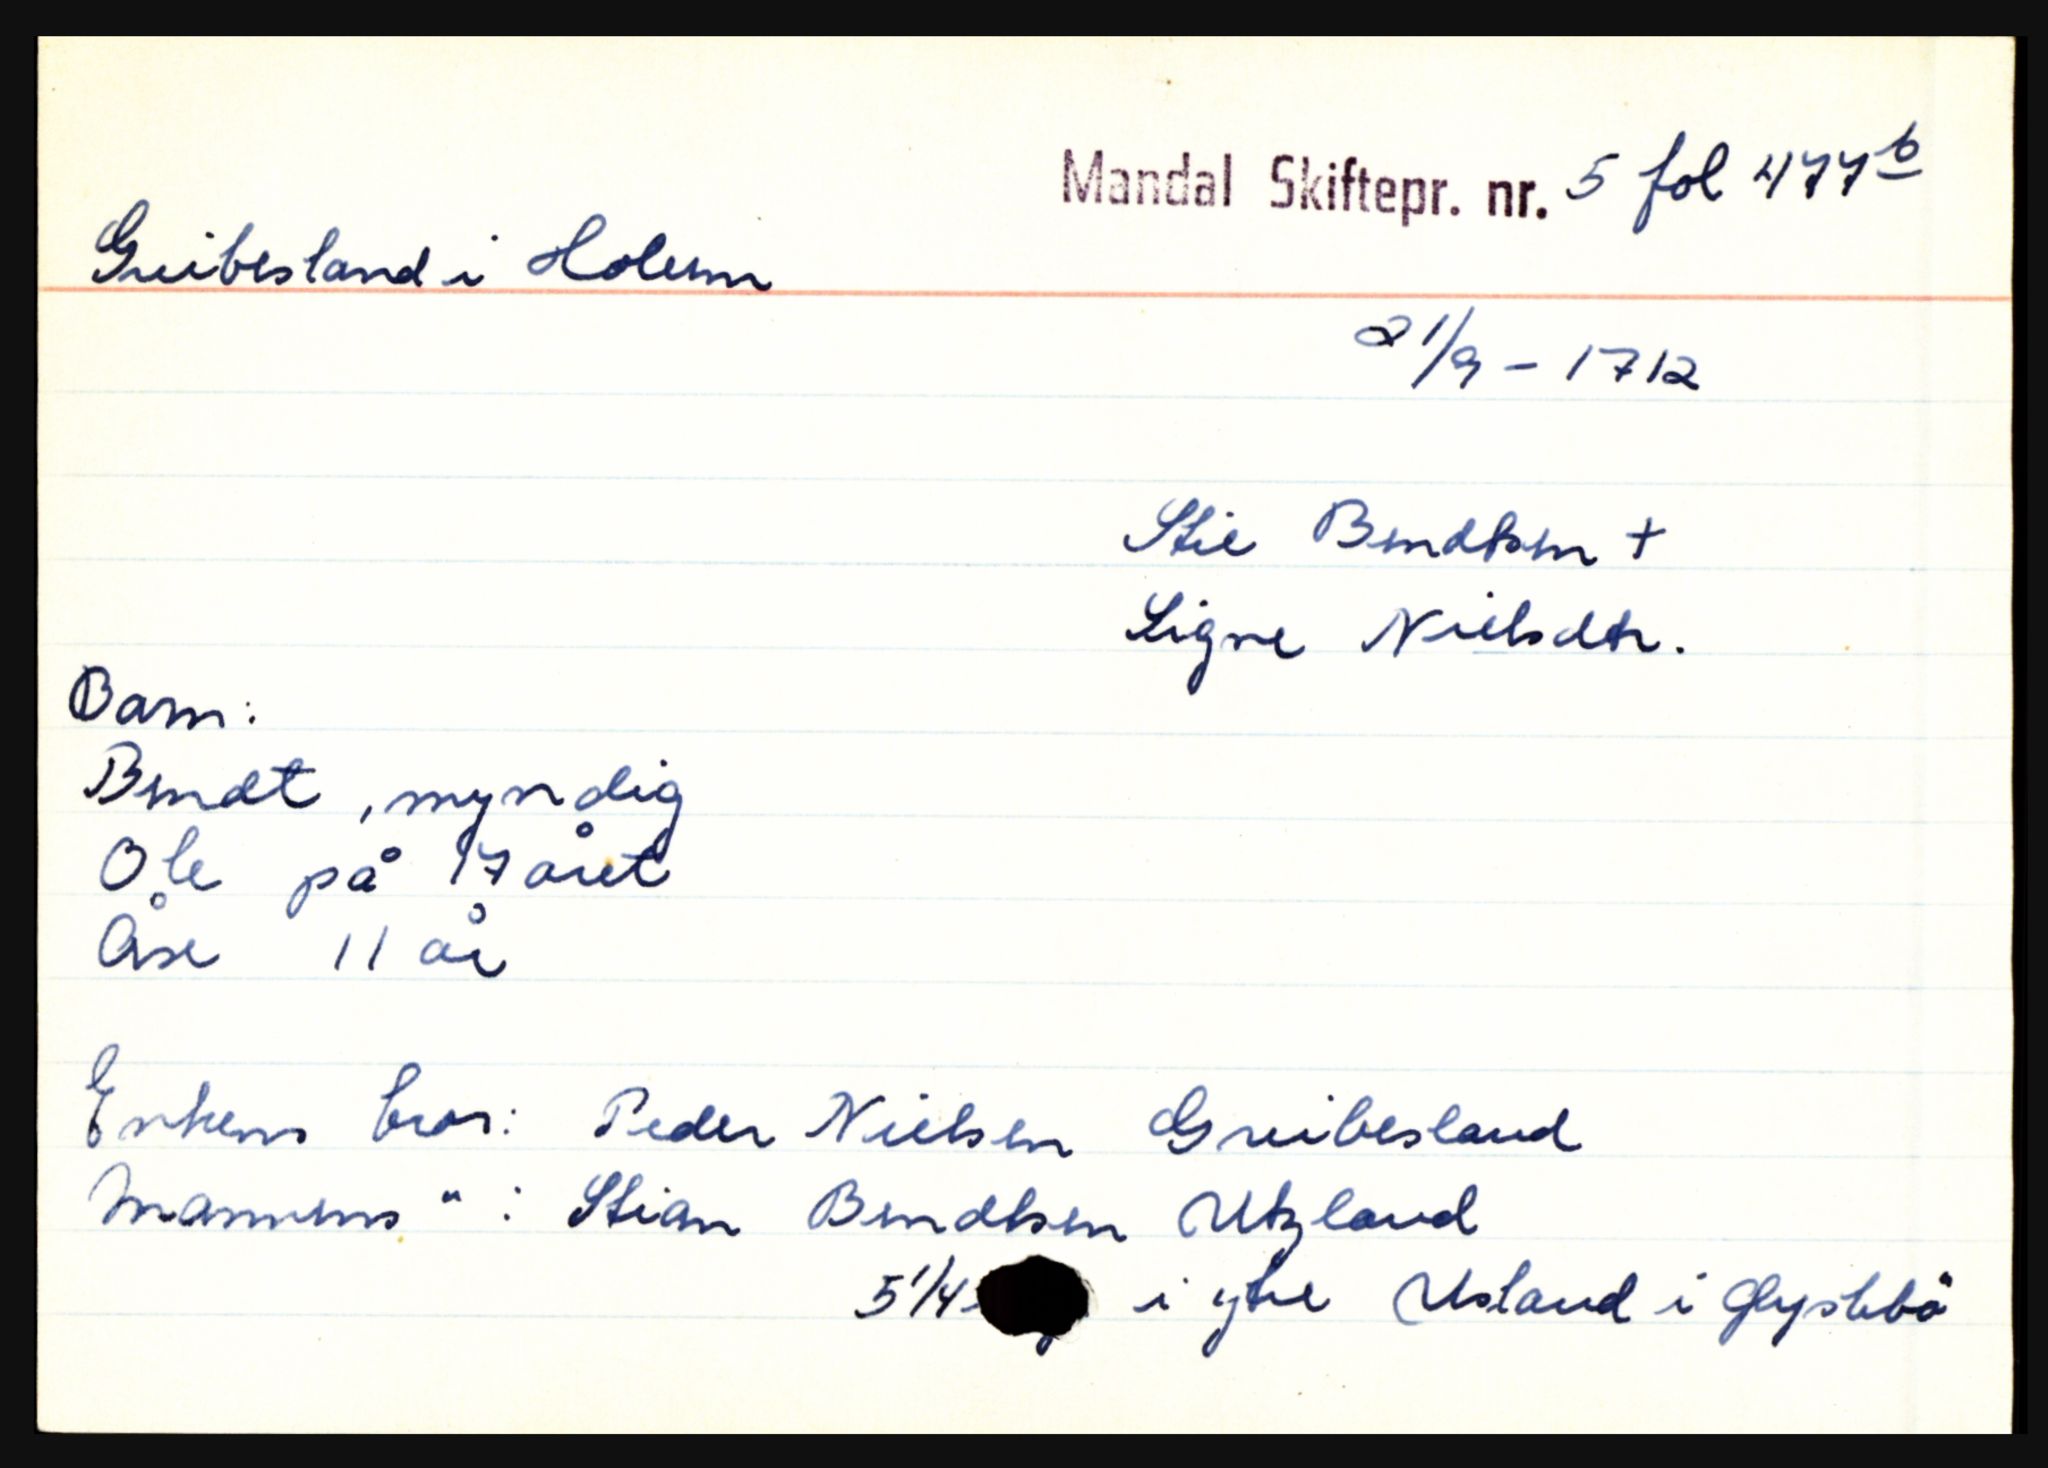 Mandal Skiftepr. nr. 5 fol 477b
Greibesland i Holum
21/9 - 1712
Stie Bendtsen +
Signe Nielsdtr.
Barn:
Bendt, myndig
Ole på 17 året
Åse 11 år
Enkens bror: Peder Nielsen Greibesland
Mannens " : Stian Bendtsen Utzland
5 1/4 i ytre Usland i Øyslebö